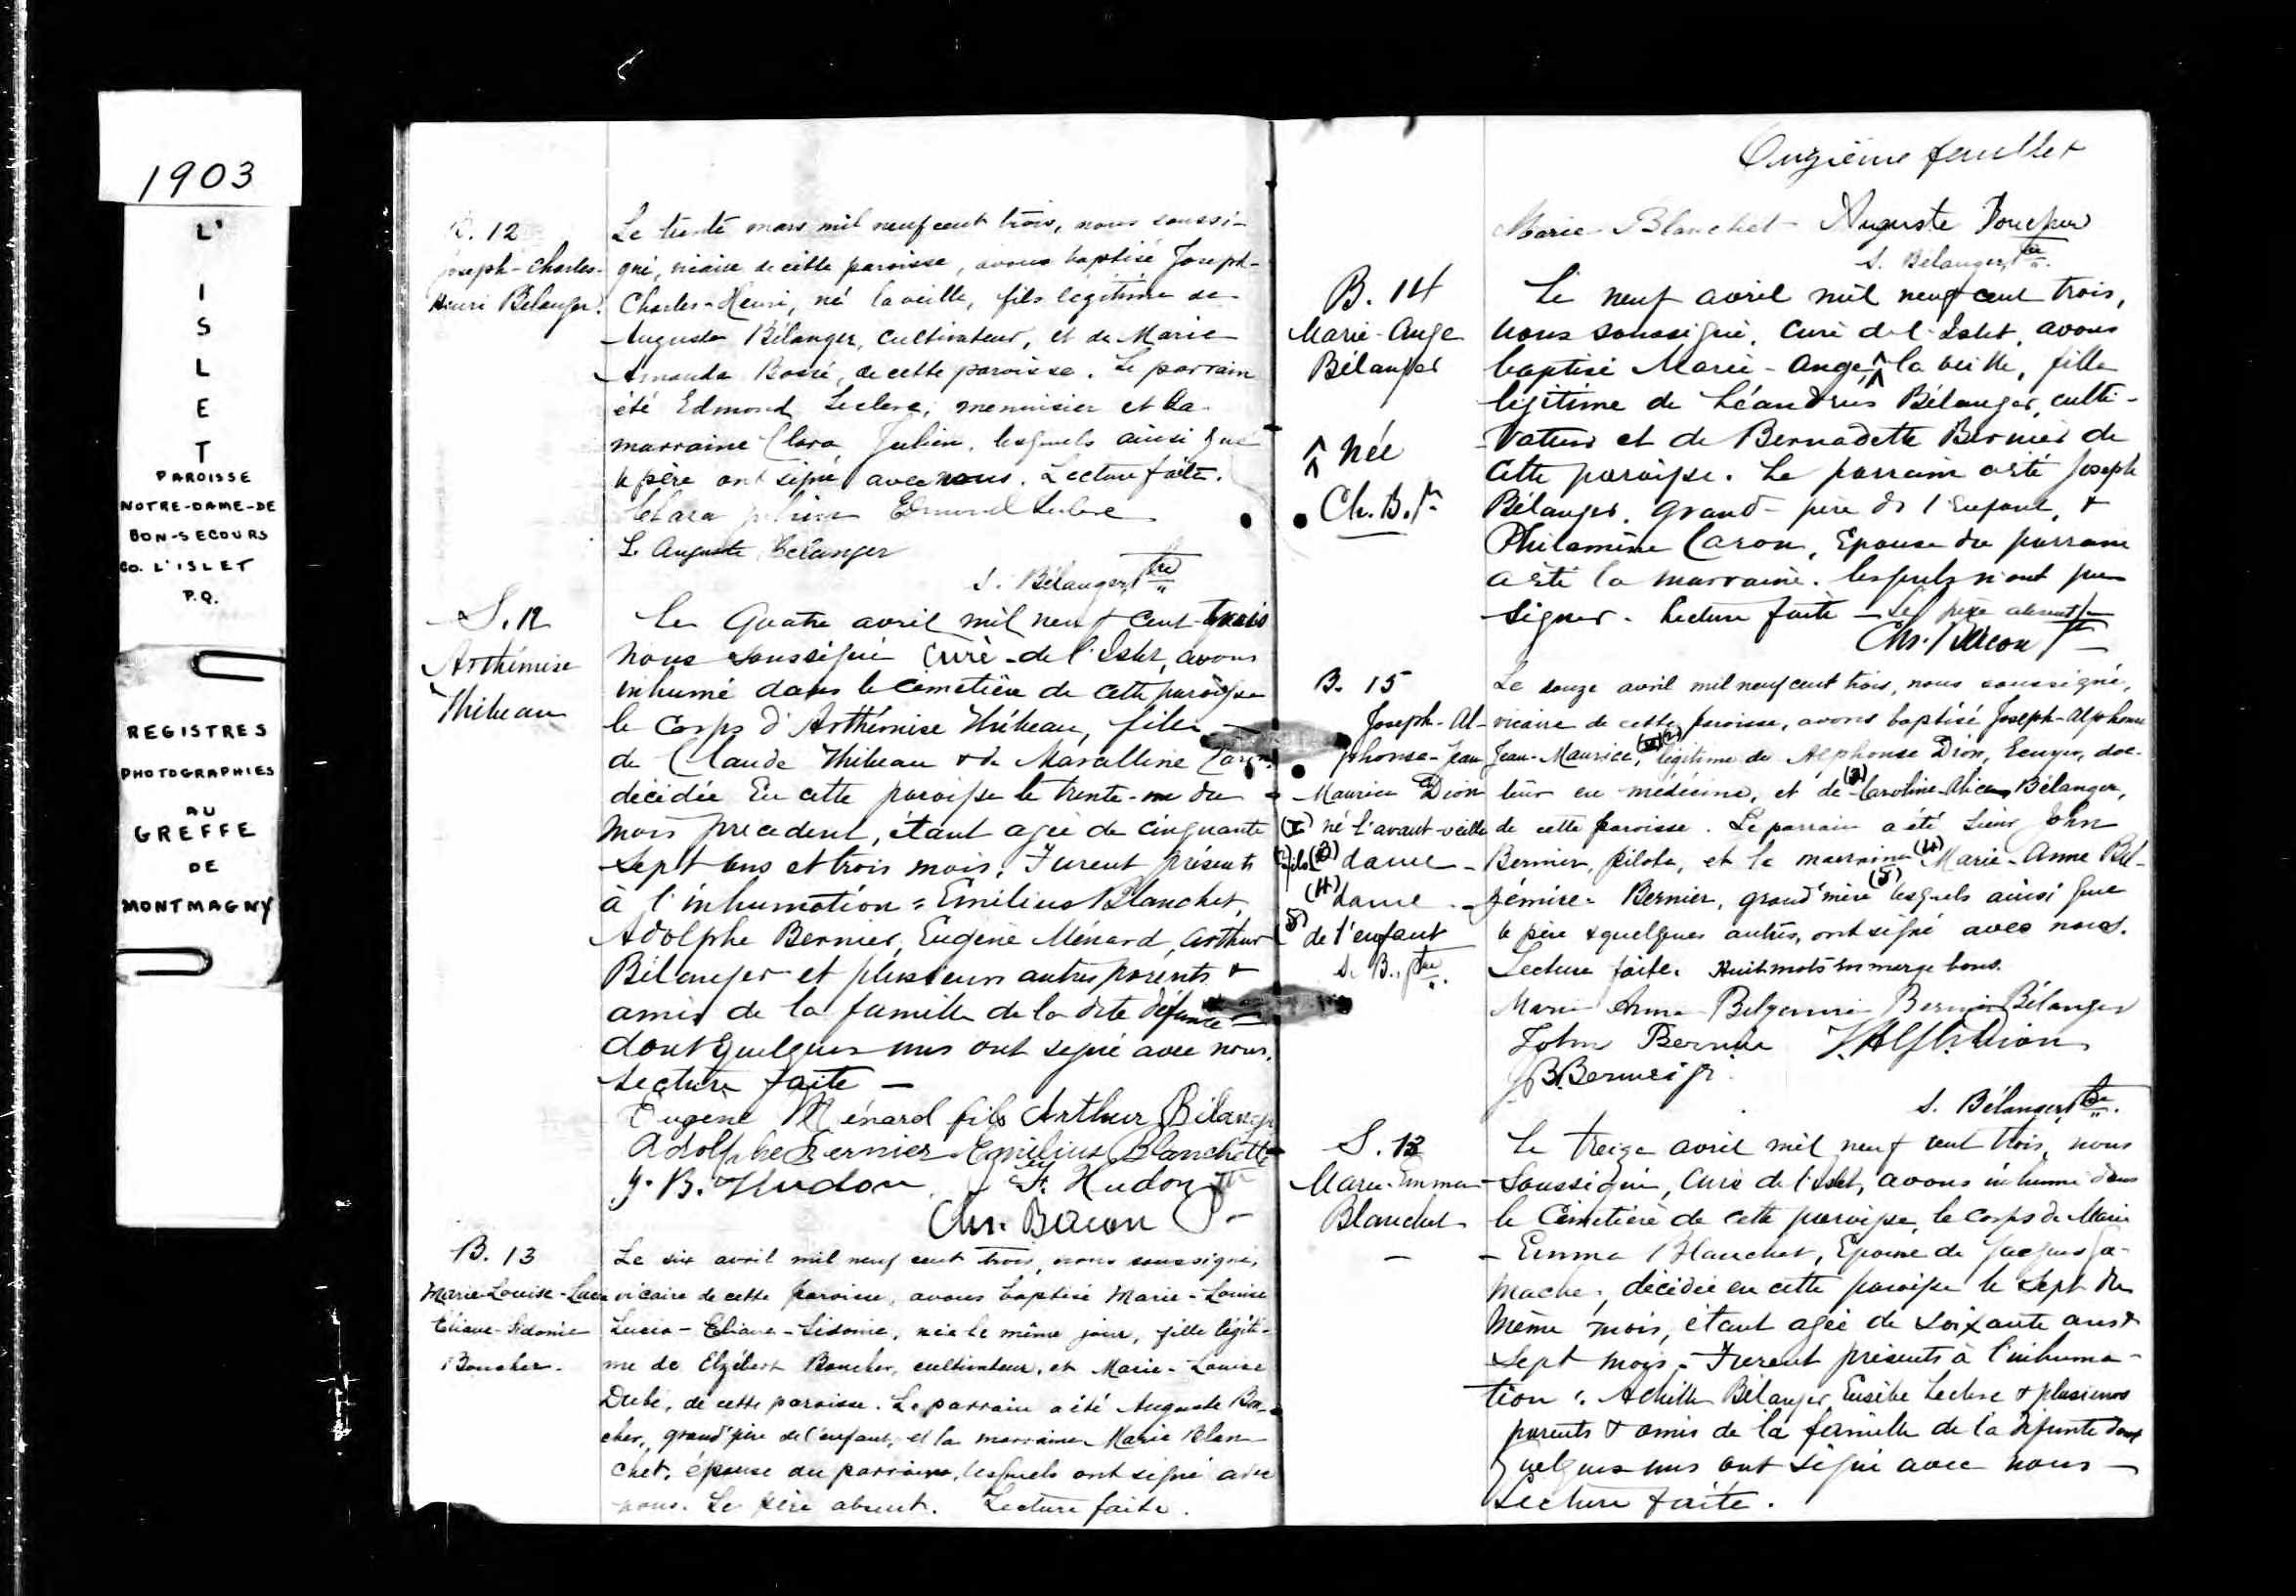 1903
L'
I
S
L
E
T
PAROISSE
NOTRE-DAME-DE
BON-SECOURS
CO. L'ISLET
P.Q.
REGISTRES
PHOTOGRAPHIES
AU
GREFFE
DE
MONTMAGNY
B. 12
Joseph-Charles-
Henri Bélanger.
Le trente mars mil neuf cent trois, nous soussi-
gné, vicaire de cette paroisse, avons baptisé Joseph-
Charles-Henri, né la veille, fils légitime de
Auguste Bélanger, cultivateur, et de Marie
Amanda Bossé, de cette paroisse. Le parrain
été Edmond Leclerc, menuisier et la
marraine Clara Julien, lesquels ainsi que
le père ont signé avec nous. Lecture faite.
Clara Julien Edmond Leclerc
L. Auguste Bélanger
S. Bélanger, Ptre
S. 12
Arthémise
Thibeau
Le Quatre avril mil neuf Cent trois
Nous soussigné Curé de l'Islet, avons
inhumé dans le cimetière de cette paroisse
le Corps d'Arthémise Thibeau, fille
de Claude Thibeau & de Marcelline Caron
décédée En cette paroisse le trente-un du
mois précédent, étant agée de cinquante
sept ans et trois mois. Furent présents
à l'inhumation = Emilius Blanchet,
Adolphe Bernier, Eugène Ménard, Arthur
Bélanger et plusieurs autres parents &
amis de la famille de la dite défunte
dont quelques uns ont signé avec nous.
Lecture faite —
Eugène Ménard fils Arthur Bélanger
Adolphe Bernier Emilius Blanchette
J. B. Hudon Hudon Ptre
Chs. Bacon Ptre
B. 13
Marie-Louise-Lucia
Eliane-Sidonie
Boucher.
Le six avril mil neuf cent trois, nous soussigné,
vicaire de cette paroisse, avons baptisé Marie-Louise
Lucia-Eliane-Sidonie, née le même jour, fille légiti-
me de Elzébert Boucher, cultivateur, et Marie-Louise
Dubé, de cette paroisse. Le parrain a été Auguste Bou-
cher, grand'père de l'enfant, et la marraine Marie Blan-
chet, épouse du parrain, lesquels ont signé avec
nous. Le père absent. Lecture faite.
Onzième feuillet
Marie Blanchet Auguste Boucher
S. Bélanger, Ptre
B. 14
Marie-Ange
Bélanger
^ Née
Ch. B. Ptre
Le neuf avril mil neuf cent trois,
nous soussigné, Curé de l'Islet, avons
baptisé Marie-Ange ^ la veille, fille
légitime de Léandre Bélanger, culti-
vateur et de Bernadette Bernier de
cette paroisse. Le parrain a été Joseph
Bélanger, grand-père de l'Enfant, &
Philomène Caron, Epouse du parrain
a été la marraine. lesquels n'ont pu
signer. Lecture faite — Le père absent
Chs. Bacon Ptre
B. 15
Joseph-Al-
phonse-Jean
Maurice Dion
(1) né l'avant-veille
(2) fils (3) dame
(4) dame
(5) de l'enfant
S. B. Ptre
Le douze avril mil neuf cent trois, nous soussigné,
vicaire de cette paroisse, avons baptisé Joseph-Alphonse
Jean-Maurice, (1)(2) légitime de Alphonse Dion, Ecuyer, doc-
teur en médecine, et de (3) Caroline-Alice Bélanger,
de cette paroisse. Le parrain a été Sieur John
Bernier, pilote, et la marraine (4) Marie-Anne Bel-
zémire Bernier, grand'mère (5) lesquels ainsi que
le père & quelques autres, ont signé avec nous.
Lecture faite. Huit mots en marge bons.
Marie Anna Belzemire Bernier Bélanger
John Bernier J. Alph. Dion
J.B. Bernier jr.
S. Bélanger, Ptre.
S. 13
Marie-Emma
Blanchet
Le treize avril mil neuf cent trois, nous
Soussigné, Curé de l'Islet, avons inhumé dans
le Cimetière de cette paroisse, le corps de Marie
- Emma Blanchet, Epouse de Jacques Ga-
mache, décédée en cette paroisse le sept du
même mois, étant agée de soixante ans &
sept mois. Furent présents à l'inhuma-
tion : Achille Bélanger, Eusèbe Leclerc & plusieurs
parents & amis de la famille de la défunte dont
quelques uns ont signé avec nous —
Lecture faite.